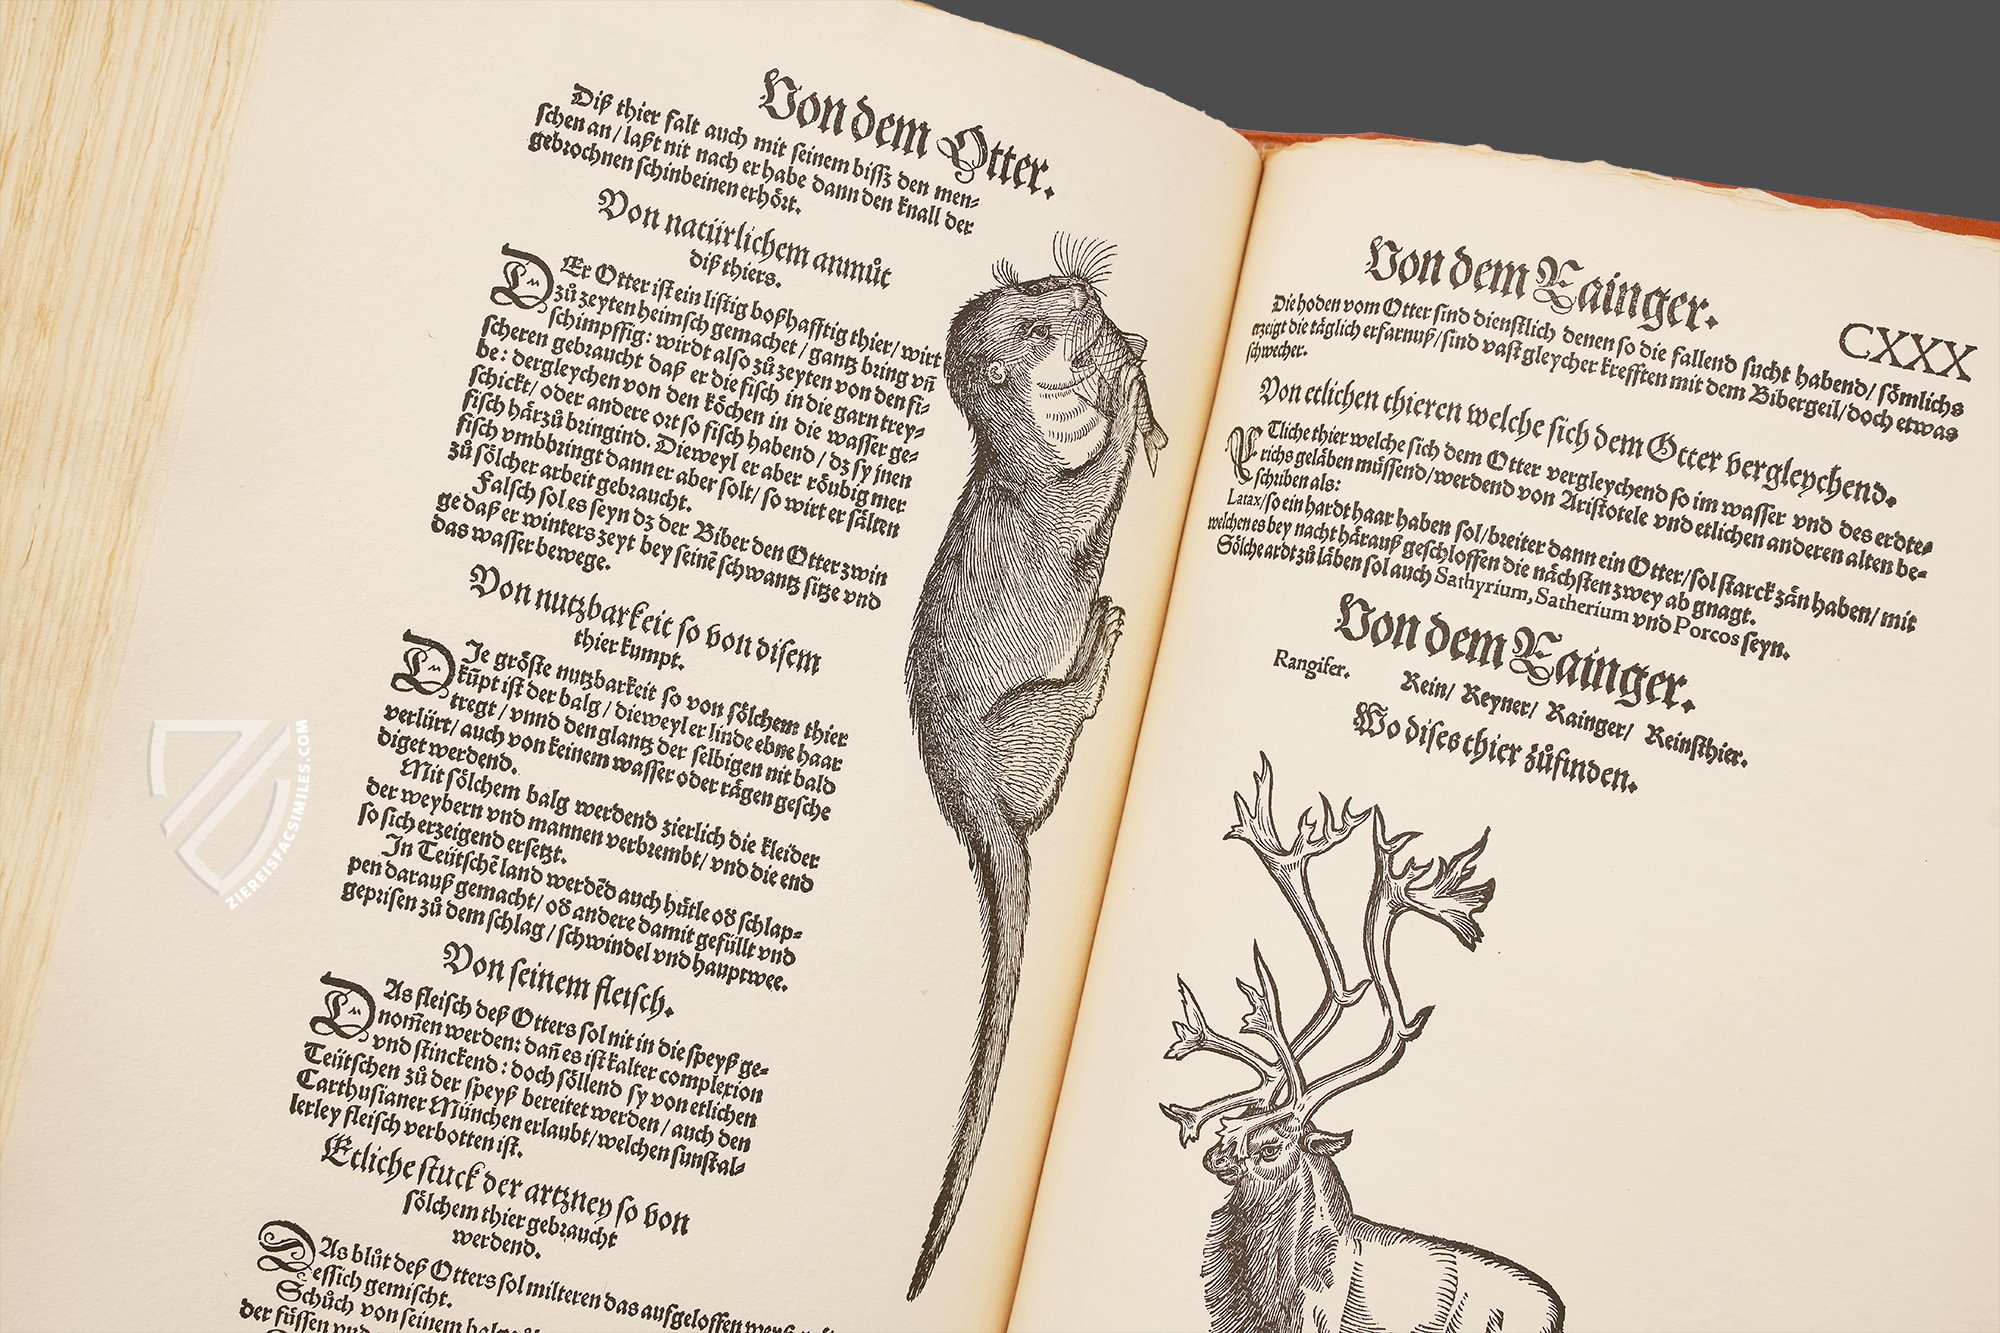 Von dem Otter.
Diß thier falt auch mit seinem bissz den men-
schen an/laßt nit nach er habe dann den knall der
gebrochnen schinbeinen erhört.
Von natürlichem anmůt
diß thiers.
DEr Otter ist ein listig boßhafftig thier/wirt
zů zeyten heimsch gemachet/gantz bring vñ
schimpffig: wirdt also zů zeyten von den fi-
scheren gebraucht daß er die fisch in die garn trey-
be: dergleychen von den köchen in die wasser ge-
schickt/oder andere ort so fisch habend/dz sy jnen
fisch härzů bringind. Dieweyl er aber röubig mer
fisch vmbbringt dann er aber solt/so wirt er sälten
zů sölcher arbeit gebraucht.
Falsch sol es seyn dz der Biber den Otter zwin
ge daß er winters zeyt bey seinē schwantz sitze vnd
das wasser bewege.
Von nutzbarkeit so von disem
thier kumpt.
DJe gröste nutzbarkeit so von sölchem thier
kūpt ist der balg/dieweyl er linde ebne haar
tregt/vnnd den glantz der selbigen nit bald
verlürt/auch von keinem wasser oder rägen gesche
diget werdend.
Mit sölchem balg werdend zierlich die kleider
der weybern vnd mannen verbrembt/vnd die end
so sich erzeigend ersetzt.
In Teütschē land werdēd auch hütle od̄ schlap-
pen darauß gemacht/od̄ andere damit gefüllt vnd
geprisen zů dem schlag/schwindel vnd hauptwee.
Von seinem fleisch.
DAs fleisch deß Otters sol nit in die speyß ge-
nom̄en werden: dañ es ist kalter complexion
vnd stinckend: doch söllend sy von etlichen
Teütschen zů der speyß bereitet werden/auch den
Carthusianer München erlaubt/welchen sunst al-
lerley fleisch verbotten ist.
Etliche stuck der artzney so von
sölchem thier gebraucht
werdend.
DAs blůt deß Otters sol milteren das aufgeloffen
essich gemischt.
Schůch von seinem
der füssen vnd
Von dem Rainger.
CXXX
Die hoden vom Otter sind dienstlich denen so die fallend sucht habend/sömlichs
erzeigt die täglich erfarnuß/sind vast gleycher krefften mit dem Bibergeil/doch etwas
schwecher.
Von etlichen thieren welche sich dem Otter vergleychend.
ETliche thier welche sich dem Otter vergleychend so im wasser vnd des erdte-
richs geläben müssend/werdend von Aristotele vnd etlichen anderen alten be-
schriben als:
Latax/so ein hardt haar haben sol/breiter dann ein Otter/sol starck zän haben/mit
welchen es bey nacht härauß geschloffen die nächsten zwey ab gnagt.
Sölche ardt zů läben sol auch Sathyrium, Satherium vnd Porcos seyn.
Von dem Rainger.
Rangifer. Rein/ Reyner/ Rainger/ Reinsthier.
Wo dises thier zůfinden.
ZIEREISFACSIMILES.COM